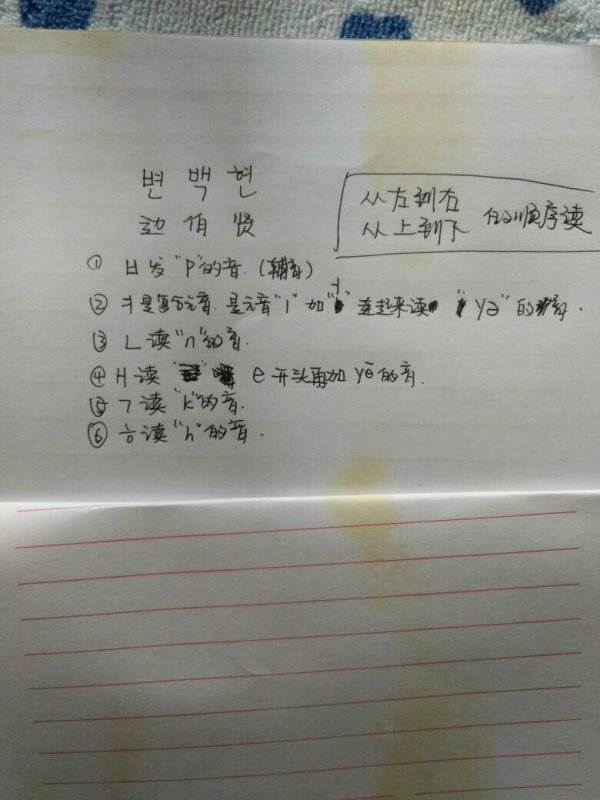 변 백 현
边 伯 贤
从左到右
从上到下 的顺序读
① ㅂ发"P"的音.(辅音)
② ㅕ是复合元音.是元音"ㅣ"加"ㅓ"连起来读 "yə"的音.
③ ㄴ读"n"的音.
④ ㅐ读 e 开头再加 yē的音.
⑤ ㄱ读"k"的音.
⑥ ㅎ读"h"的音.